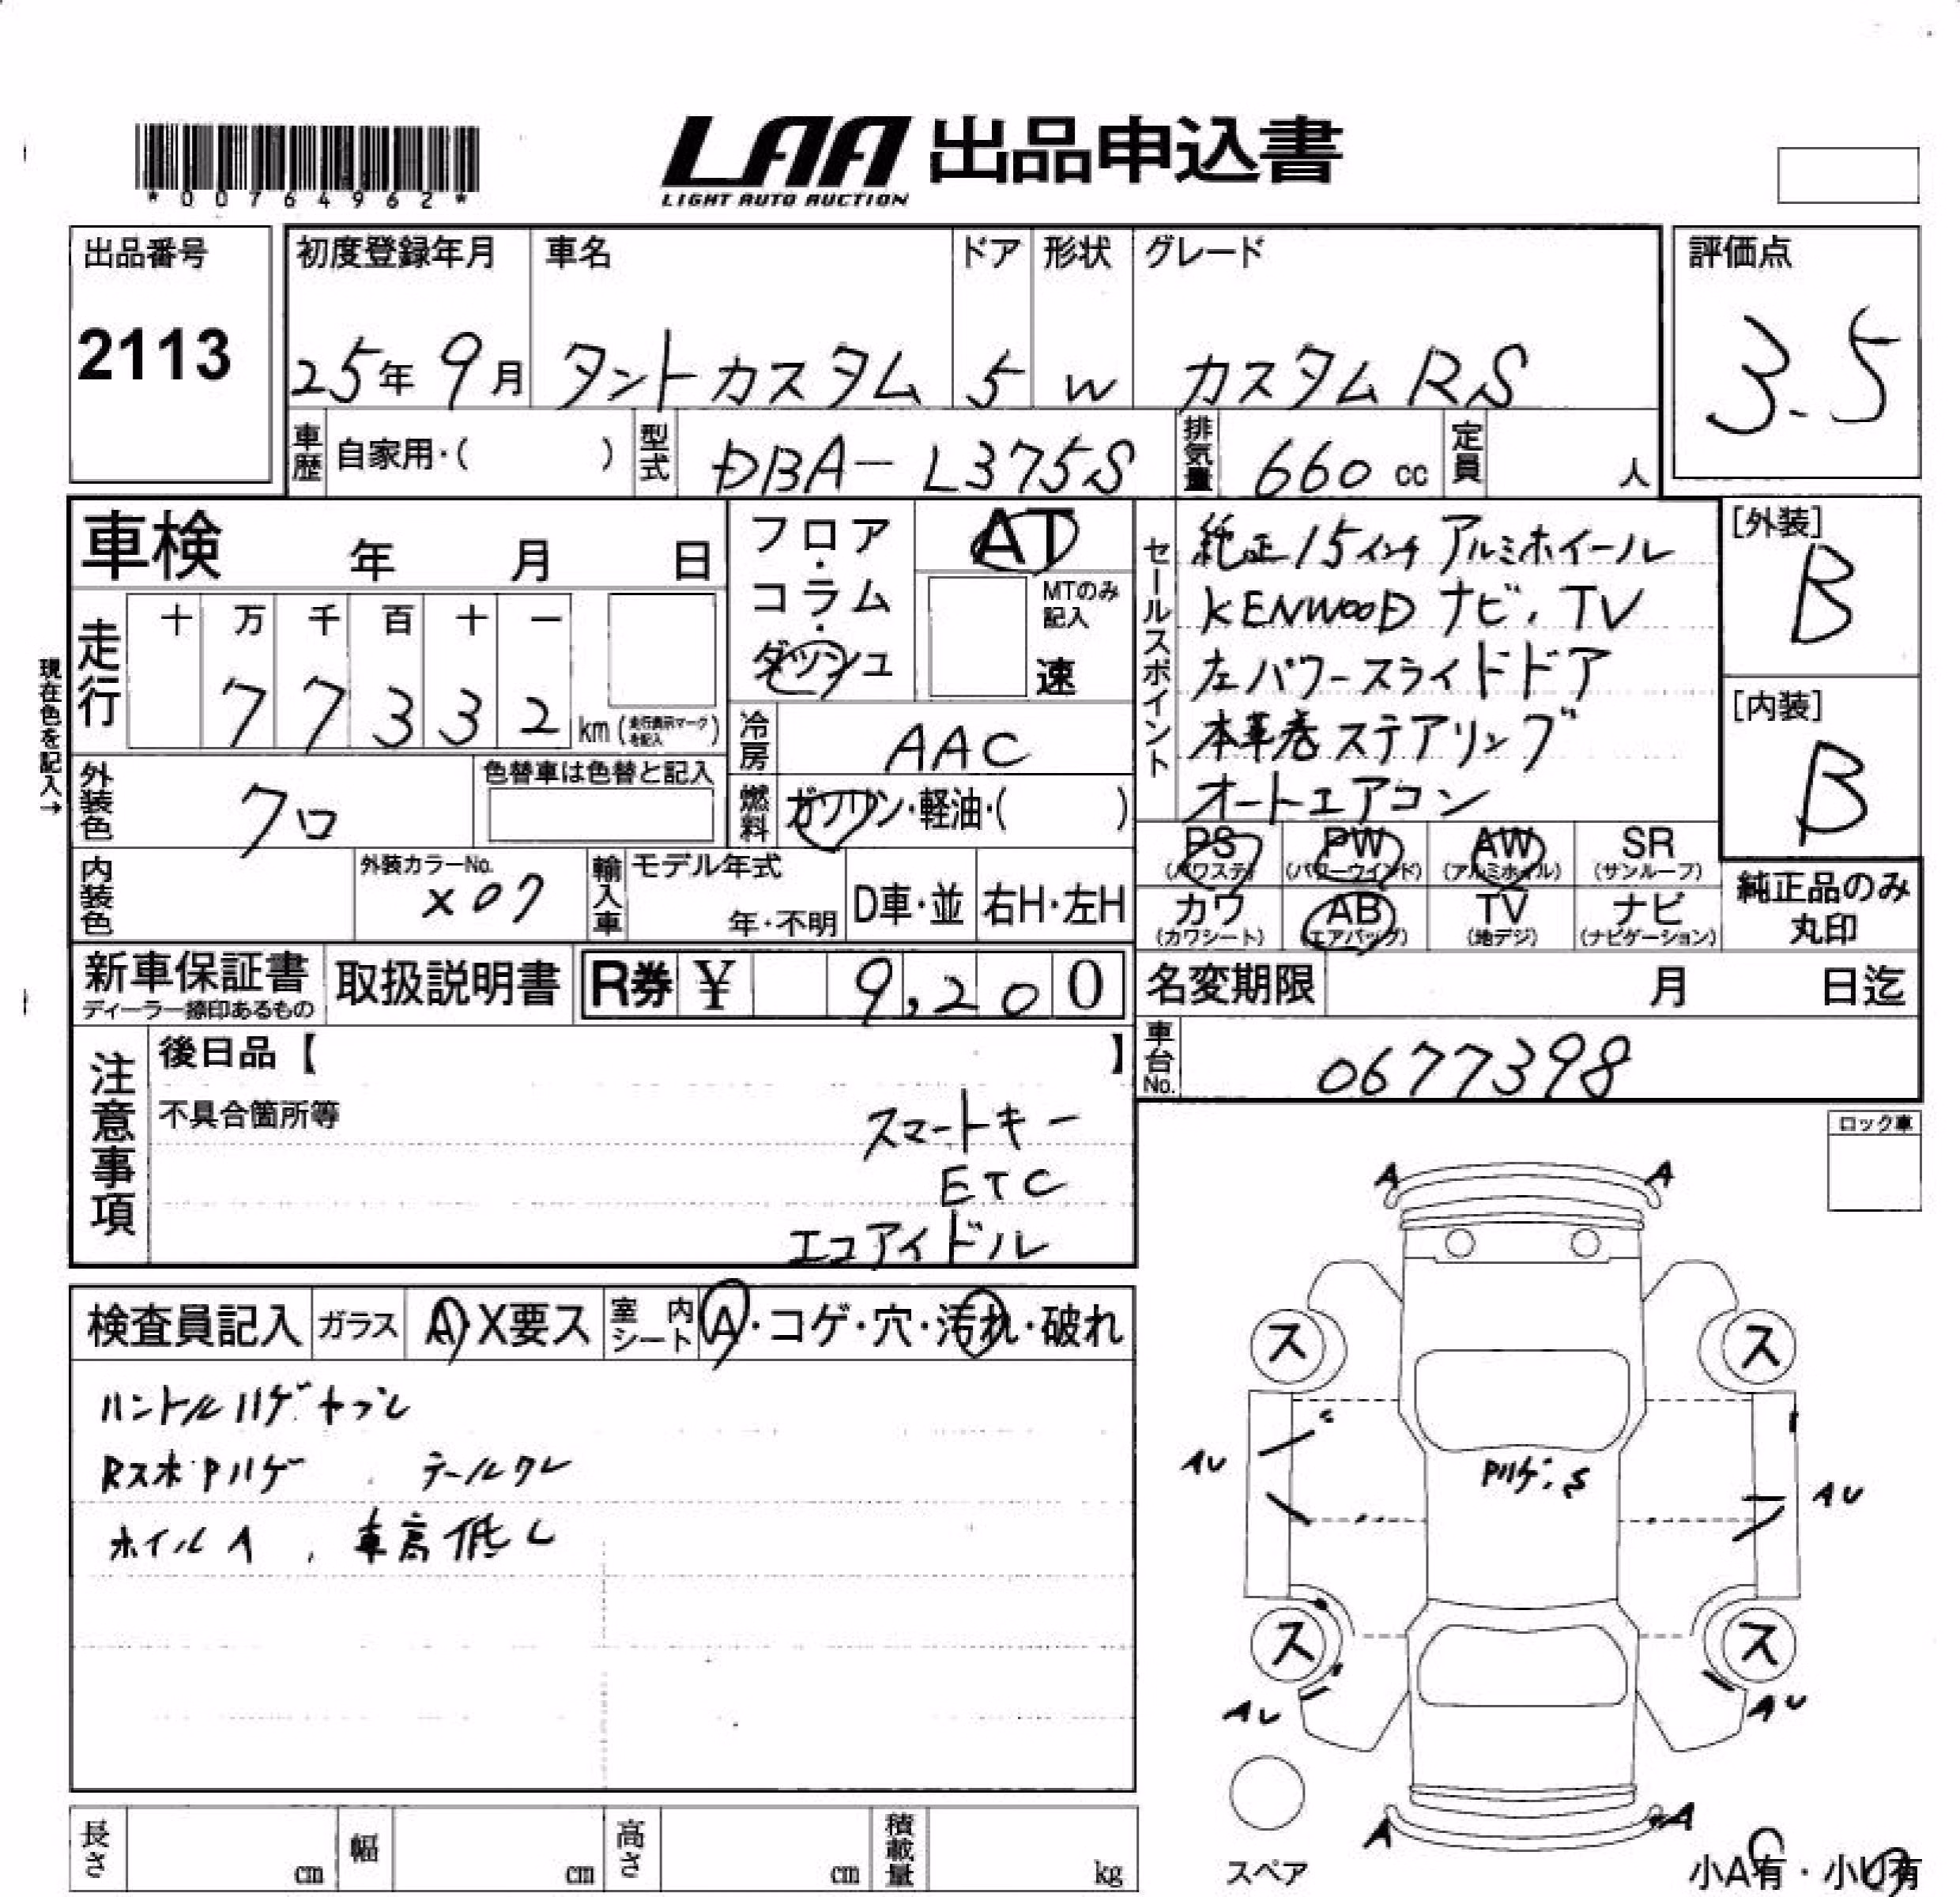 *00764962*
LAA 出品申込書
LIGHT AUTO AUCTION
出品番号
2113
初度登録年月
25年9月
車名
タントカスタム
ドア
5
形状
W
グレード
カスタムRS
評価点
3.5
車歴 自家用・( )
型式 DBA-L375S
排気量 660 cc
定員 人
車検 年 月 日
現在色を記入→
走行
十 万 千 百 十 一
7 7 3 3 2 km (走行表示マークを記入)
フロア・コラム・ダッシュ
AT
MTのみ
記入
速
冷房 AAC
燃料 ガソリン・軽油・( )
外装色 クロ
色替車は色替と記入
内装色
外装カラーNo.
X07
輸入車
モデル年式
年・不明
D車・並
右H・左H
セールスポイント
純正15インチ アルミホイール
KENWOOD ナビ、TV
左パワースライドドア
本革巻ステアリング
オートエアコン
[外装]
B
[内装]
B
PS (パワステ)
PW (パワーウインド)
AW (アルミホイル)
SR (サンルーフ)
カワ (カワシート)
AB (エアバッグ)
TV (地デジ)
ナビ (ナビゲーション)
純正品のみ
丸印
新車保証書
ディーラー捺印あるもの
取扱説明書
R券 ¥ 9,200
名変期限 月 日迄
車台No. 0677398
注意事項
後日品【 】
不具合箇所等
スマートキー
ETC
エコアイドル
ロック車
検査員記入
ガラス A・X要ス
室内シート A・コゲ・穴・汚れ・破れ
ハンドルハゲ ヤブレ
RスポPハゲ 、テールワレ
ホイルA 、車高低し
A A
ス ス
AU
Pハゲ、S
AU
ス ス
AU AU
A A
スペア
小A有・小U有
長さ cm
幅 cm
高さ cm
積載量 kg